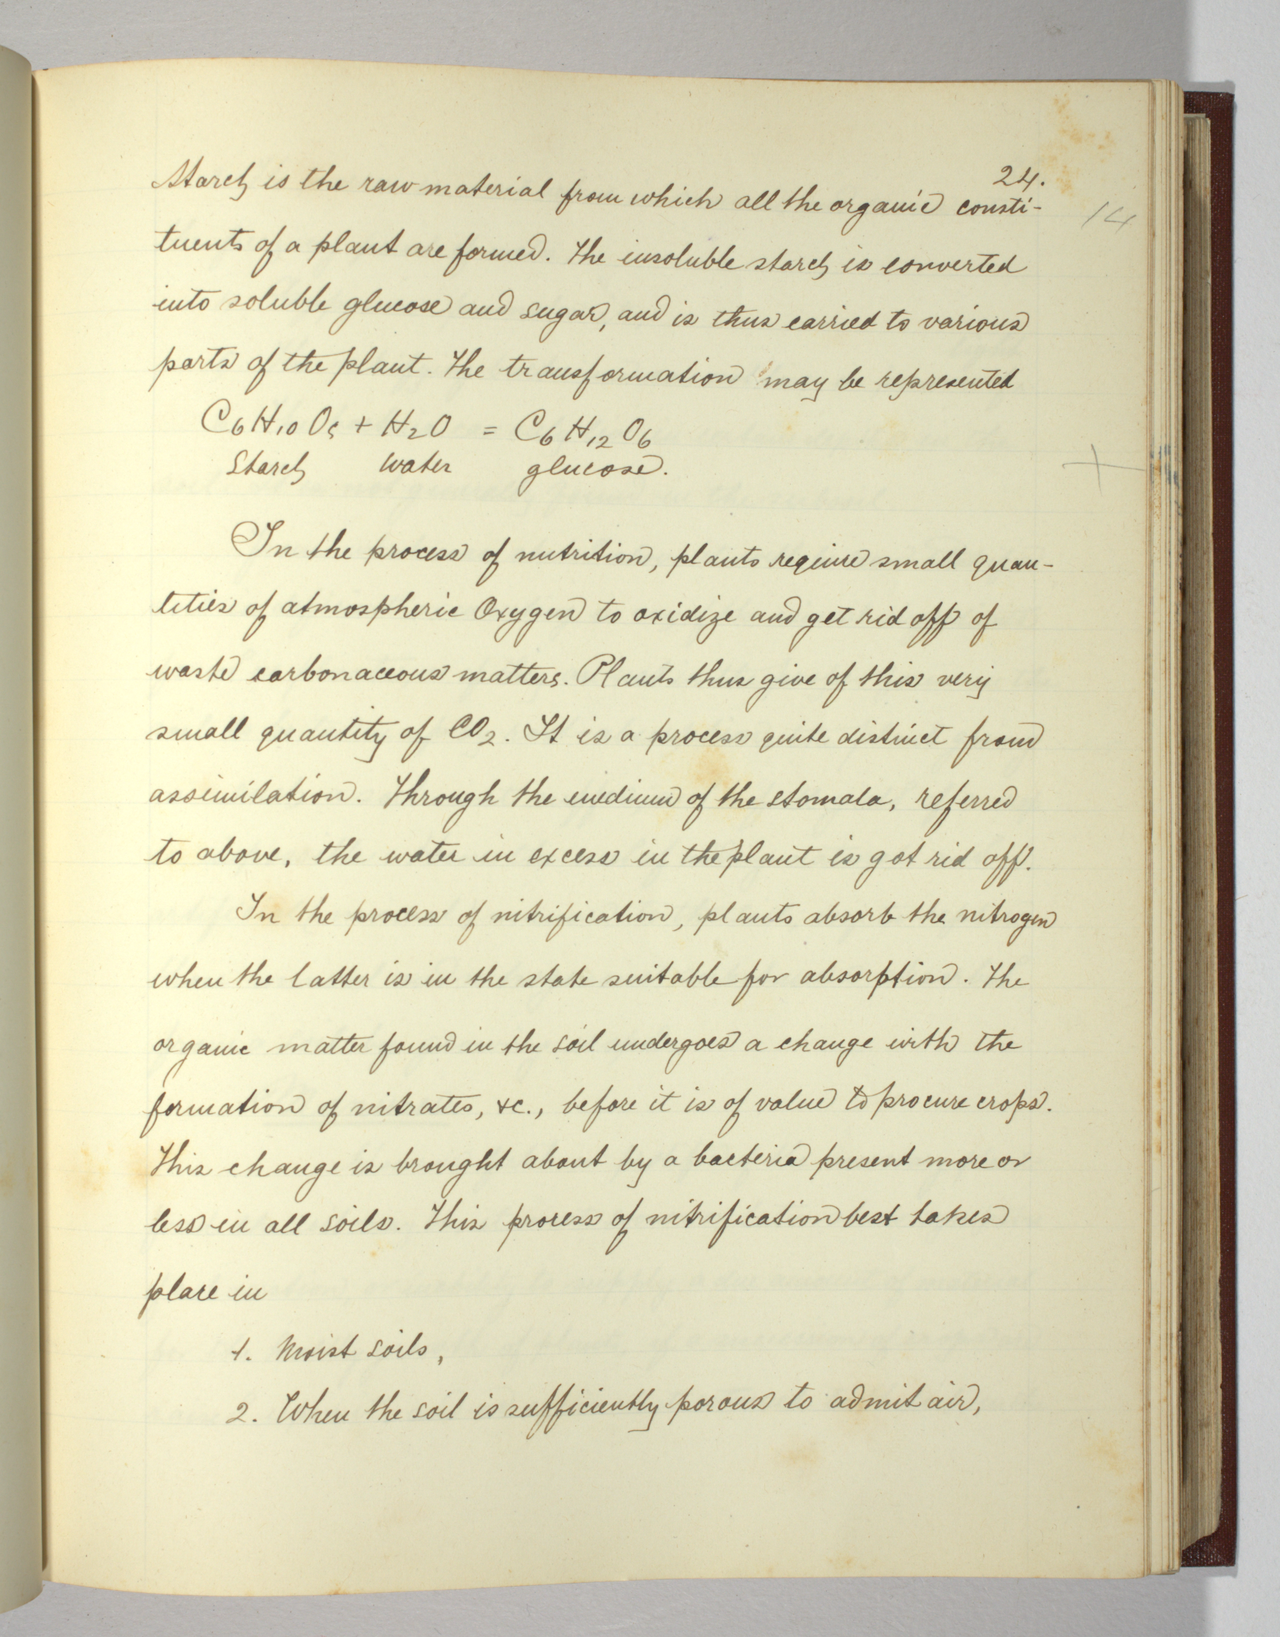 24.
14
Starch is the raw material from which all the organic consti-
tuents of a plant are formed. The insoluble starch is converted
into soluble glucose and sugar, and is thus carried to various
parts of the plant. The transformation may be represented
C6H10O5 + H2O = C6H12O6
Starch water glucose.
In the process of nutrition, plants require small quan-
tities of atmospheric Oxygen to oxidize and get rid off of
waste carbonaceous matters. Plants thus give of this very
small quantity of CO2. It is a process quite distinct from
assimilation. Through the medium of the stomata, referred
to above, the water in excess in the plant is got rid off.
In the process of nitrification, plants absorb the nitrogen
when the latter is in the state suitable for absorption. The
organic matter found in the soil undergoes a change with the
formation of nitrates, &c., before it is of value to procure crops.
This change is brought about by a bacteria present more or
less in all soils. This process of nitrification best takes
place in
1. Moist soils,
2. When the soil is sufficiently porous to admit air,